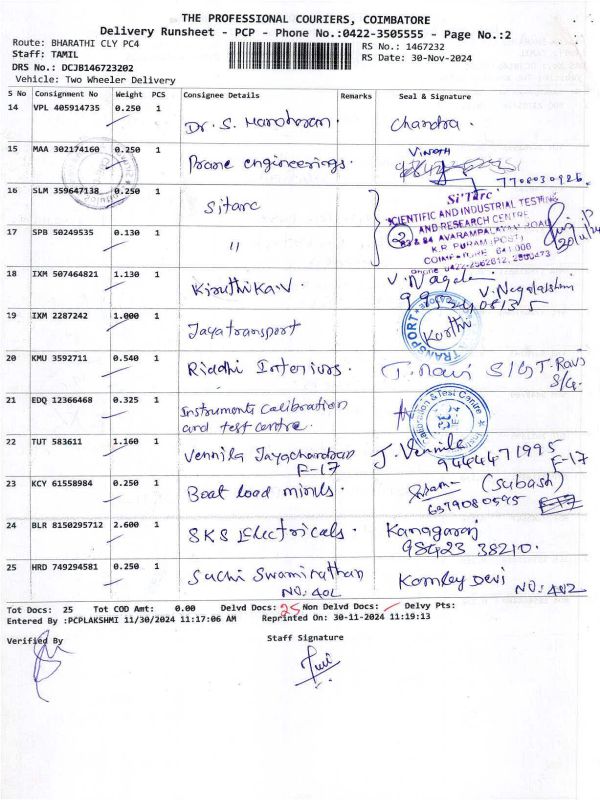 THE PROFESSIONAL COURIERS, COIMBATORE
Delivery Runsheet - PCP - Phone No.:0422-3505555 - Page No.:2
Route: BHARATHI CLY PC4
RS No.: 1467232
Staff: TAMIL
RS Date: 30-Nov-2024
DRS No.: DCJB146723202
Vehicle: Two Wheeler Delivery
S No Consignment No Weight PCS Consignee Details Remarks Seal & Signature
14 VPL 405914735 0.250 1 Dr. S. Manoharan. Chandra.
15 MAA 302174160 0.250 1 Prane engineerings. Vinoth
7708030926.
16 SLM 359647138 0.250 1 Sitarc
Si'Tarc
SCIENTIFIC AND INDUSTRIAL TESTING
AND RESEARCH CENTRE
83 & 84 AVARAMPALAYAM ROAD
K.R. PURAM (POST)
COIMBATORE 641 006
17 SPB 50249535 0.130 1 "
18 IXM 507464821 1.130 1 Kiruthika.V V. Nagalakshmi
19 IXM 2287242 1.000 1 Jayatransport Karthi
TRANSPORT
20 KMU 3592711 0.540 1 Riddhi Interiors. T. Ravi S/G T. Ravi
S/G.
21 EDQ 12366468 0.325 1 Instruments Calibration
and test centre.
& Test Centre
22 TUT 583611 1.160 1 Vennila Jayachandran J. Vennila
F-17 9444471995 F-17
23 KCY 61558984 0.250 1 Boat load minds. (Subash)
6379080595
24 BLR 8150295712 2.600 1 SKS Electricals. Kanagaraj
98423 38210.
25 HRD 749294581 0.250 1 Suchi Swaminathan Komley Devi
NO: 402 NO: 402
Tot Docs: 25 Tot COD Amt: 0.00 Delvd Docs: 25 Non Delvd Docs: Delvy Pts:
Entered By :PCPLAKSHMI 11/30/2024 11:17:06 AM Reprinted On: 30-11-2024 11:19:13
Verified By Staff Signature